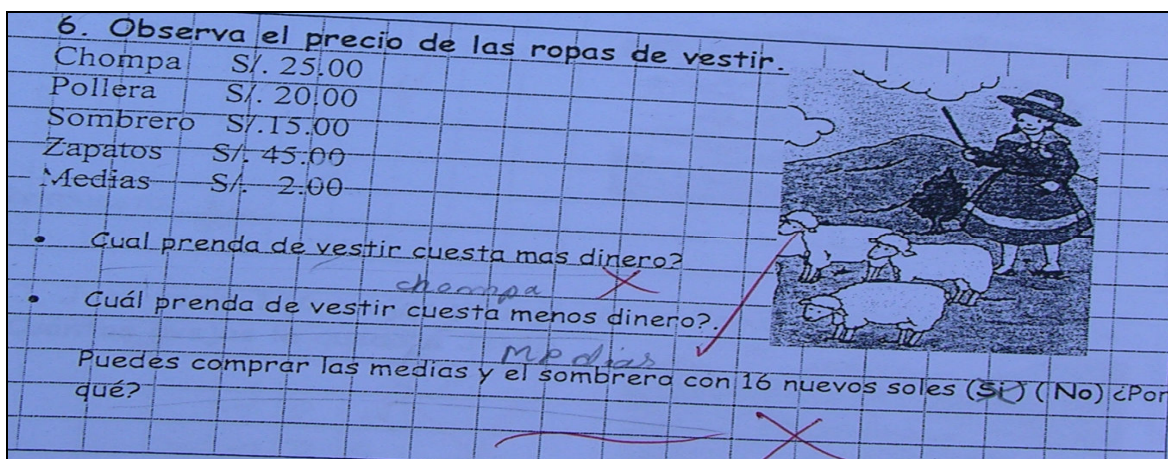 6. Observa el precio de las ropas de vestir.
Chompa S/. 25.00
Pollera S/. 20.00
Sombrero S/.15.00
Zapatos S/. 45.00
Medias S/. 2.00
• Cual prenda de vestir cuesta mas dinero?
chompa
• Cuál prenda de vestir cuesta menos dinero?.
Medias
Puedes comprar las medias y el sombrero con 16 nuevos soles (Si) ( No) ¿Por
qué?